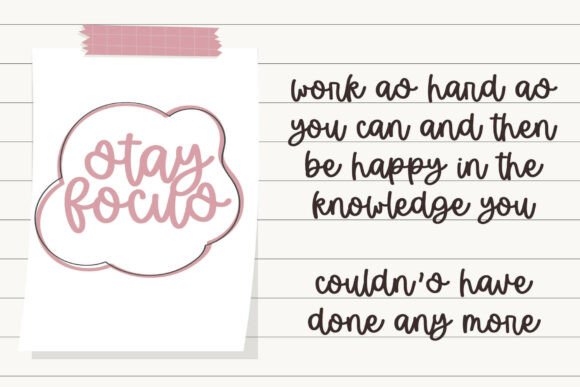 stay
focus
work as hard as
you can and then
be happy in the
knowledge you
couldn's have
done any more